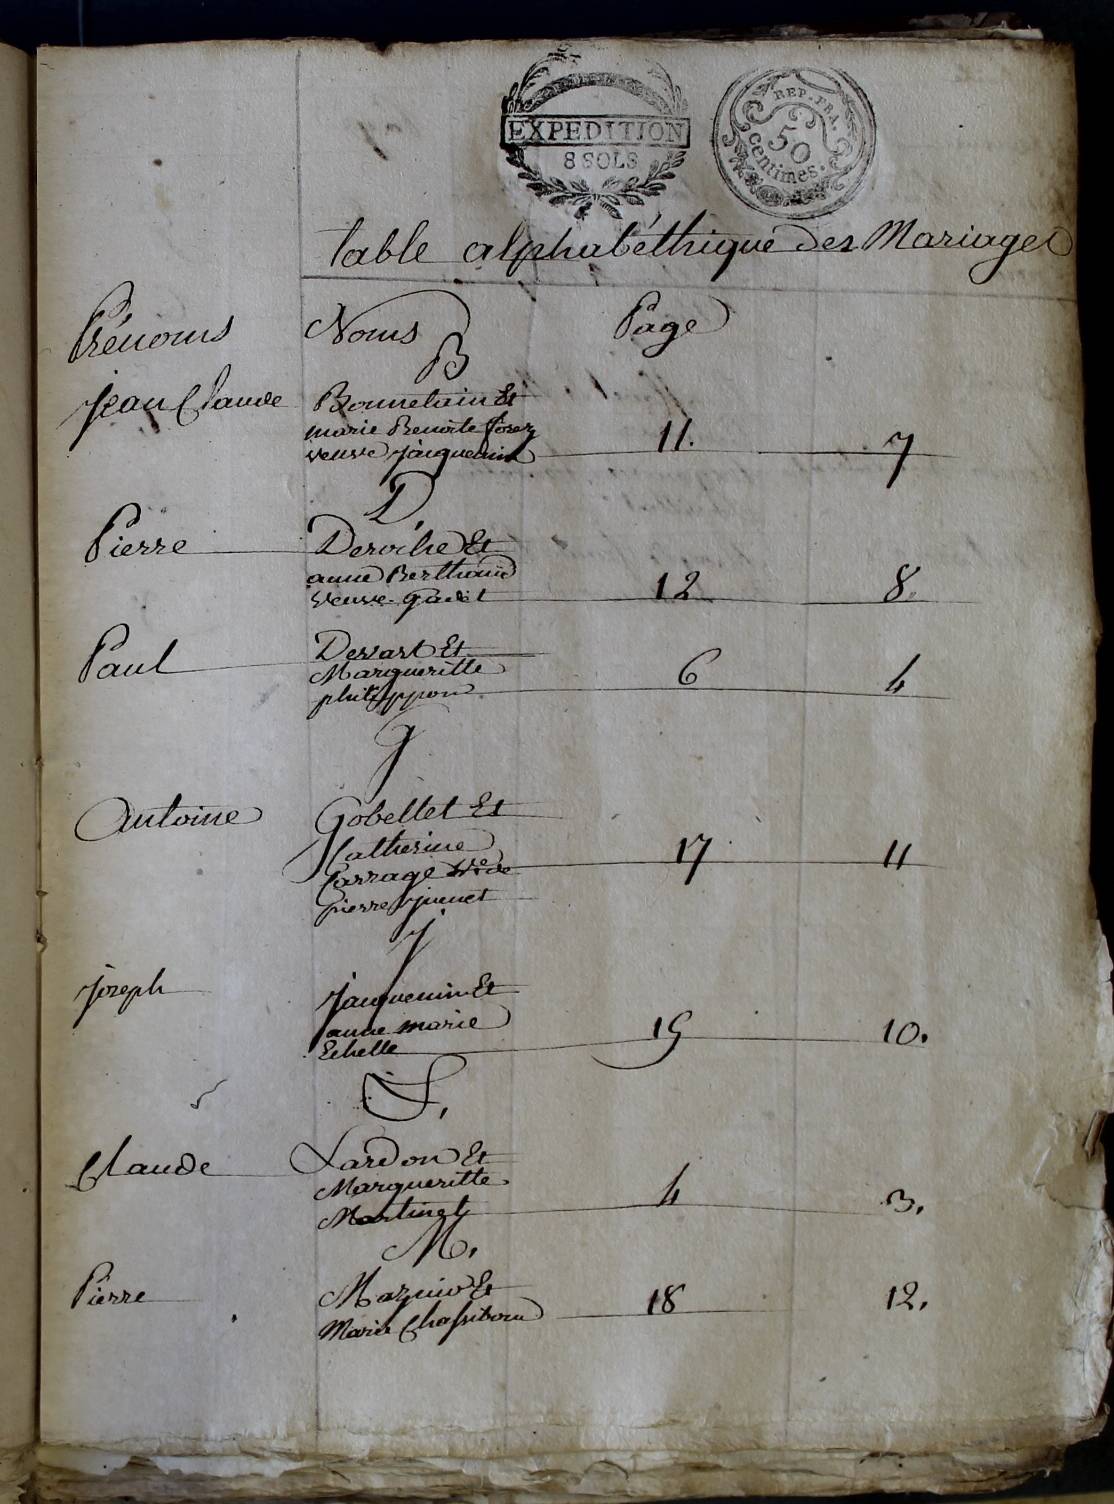 EXPEDITION
8 SOLS
REP. FRA.
50
centimes.
table alphabéthique des Mariages
Prénoms Noms Page
B
jean Claude Bonnetain Et
marie Benoite forez
veuve jacquemin 11. 7
D
Pierre Deroche Et
anne Berthaud
veuve gadet 12 8.
Paul Dessart Et
Margueritte
philippon 6 4
g
Antoine Gobellet Et
Catherine
Carrage Vve de
pierre 17 11
J
joseph jacquemin Et
anne marie
Echelle 15 10.
L.
Claude Lardon Et
Margueritte
Martinet 4 3.
M.
Pierre Et
Marie 18 12.